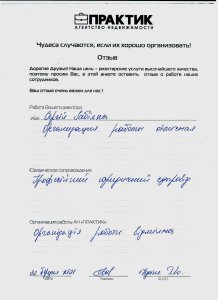 ПРАКТИК
АГЕНТСТВО НЕДВИЖИМОСТИ
Чудеса случаются, если их хорошо организовать!
Отзыв
Дорогие Друзья! Наша цель - риэлтерские услуги высочайшего качества,
поэтому просим Вас, в этой анкете оставить отзыв о работе наших
сотрудников.
Ваш отзыв очень важен для нас!
Работа Вашего риэлтора:
Имя Сергій
Организация работы отличная
Юридическое сопровождение:
Професійний юридичний супровід
Организация работы АН «ПРАКТИК»
Організація роботи відмінна
Дата Подпись Ф.И.О.